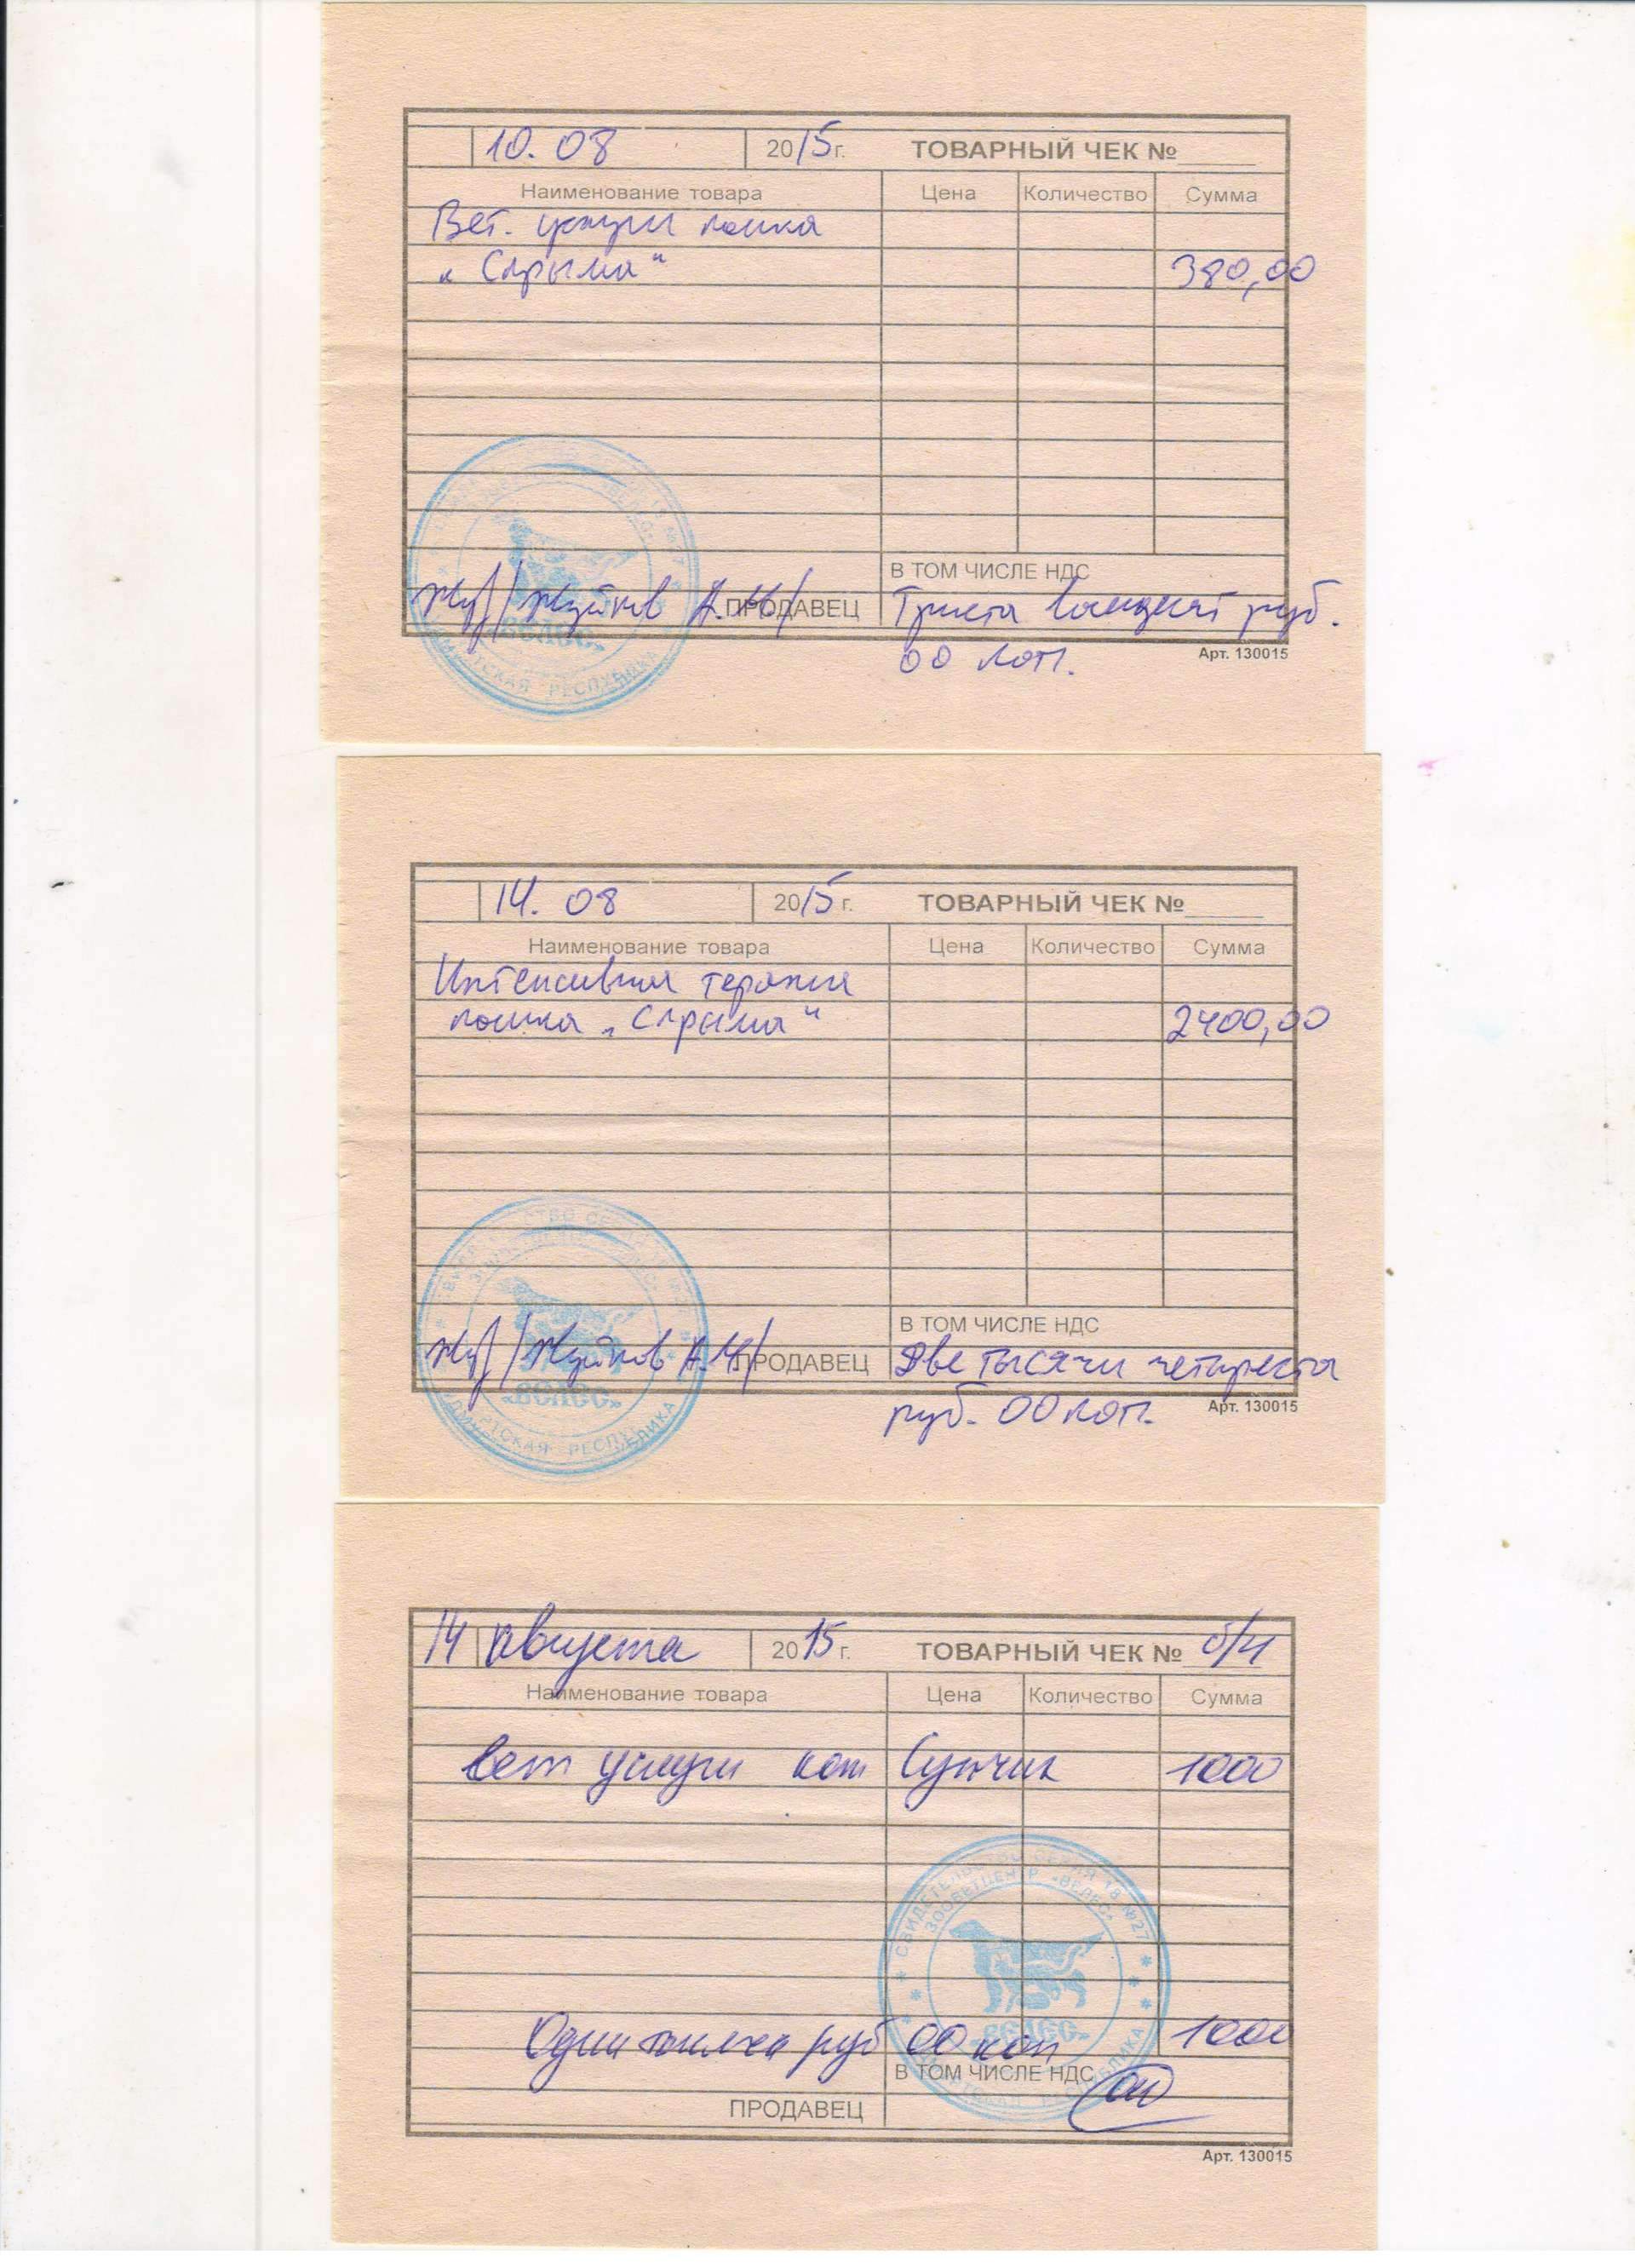 10. 08 2015 г. ТОВАРНЫЙ ЧЕК №
Наименование товара Цена Количество Сумма
Вет. услуги кошка
„Скрыма“ 380,00
В ТОМ ЧИСЛЕ НДС
/Жуйков А.И/ ПРОДАВЕЦ Триста восемдесят руб.
00 коп.
Арт. 130015
«ВЕЛЕС»
РЕСПУБЛИКА
14. 08 2015 г. ТОВАРНЫЙ ЧЕК №
Наименование товара Цена Количество Сумма
Интенсивная терапия
кошка „Скрыма“ 2400,00
В ТОМ ЧИСЛЕ НДС
/Жуйков А.И/ ПРОДАВЕЦ Две тысячи четыреста
руб. 00 коп.
Арт. 130015
«ВЕЛЕС»
РЕСПУБЛИКА
14 августа 2015 г. ТОВАРНЫЙ ЧЕК № б/н
Наименование товара Цена Количество Сумма
вет услуги кот Супчик 1000
СВИДЕТЕЛЬСТВО СЕРИЯ 18 №27
ЗООВЕТЦЕНТР «ВЕЛЕС»
«ВЕЛЕС»
УДМУРТСКАЯ РЕСПУБЛИКА
Одна тысяча руб 00 коп 1000
В ТОМ ЧИСЛЕ НДС
ПРОДАВЕЦ
Арт. 130015